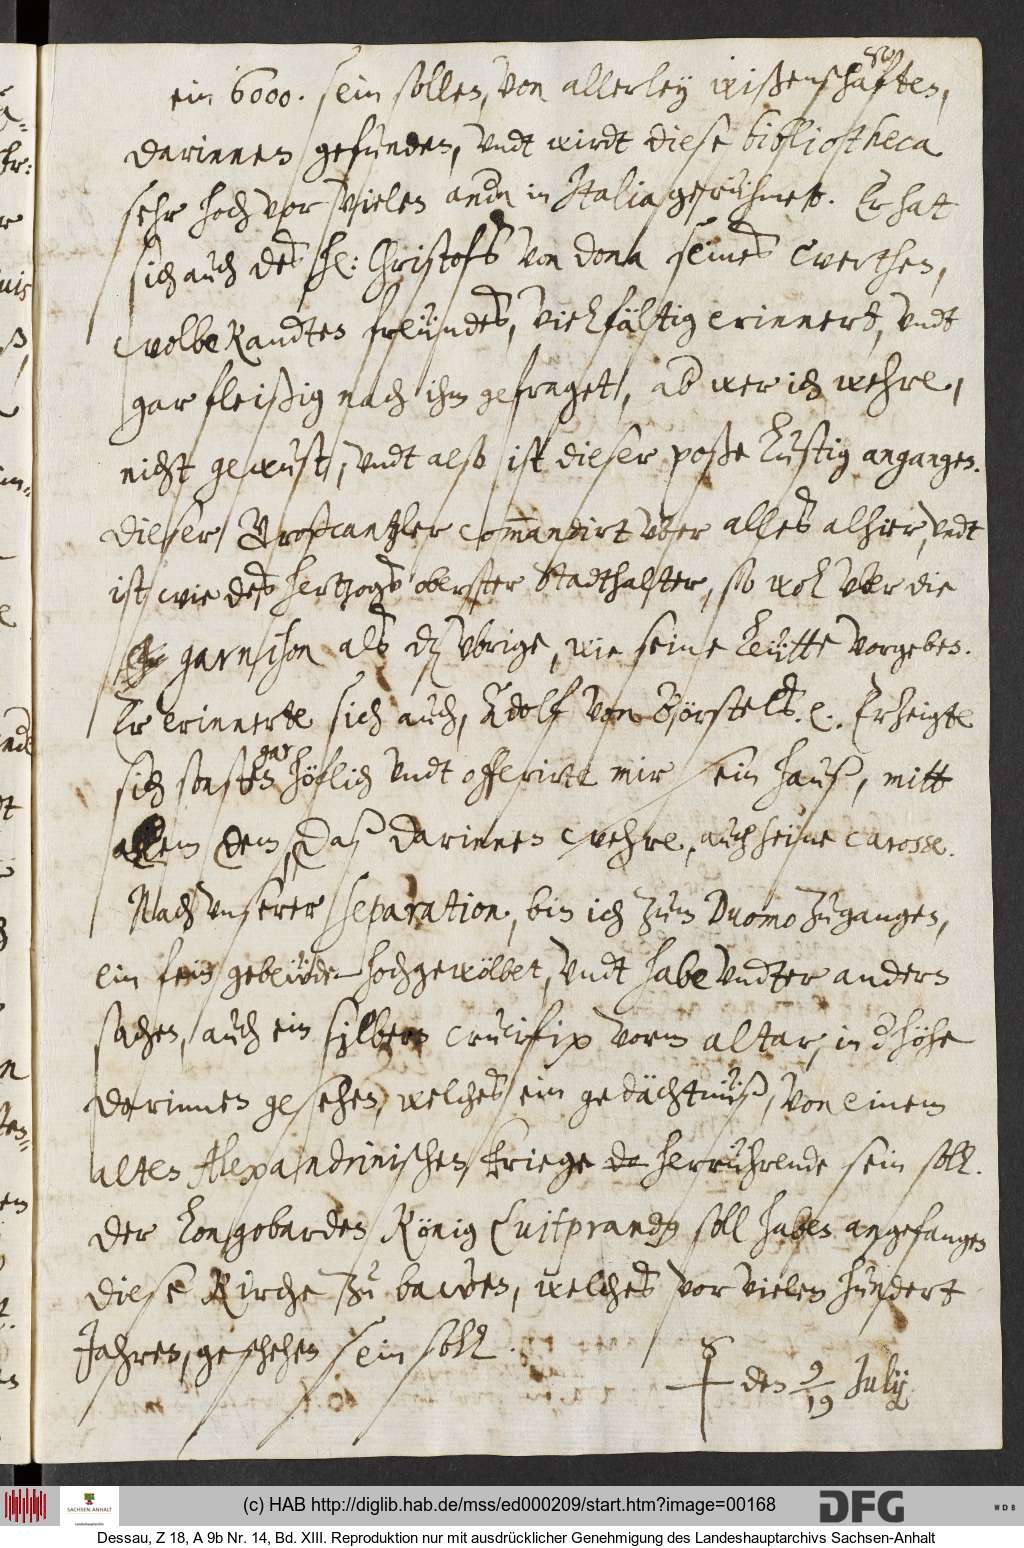 so
ein 6000. sein sollen, von allerley wißenschaften,
darinnen gefunden, vndt wirdt diese bibliotheca
sehr hoch vor vielen andn in Italia gerühmet. Er hat
sich auch des h: Christofs von Dona seines werthen,
wolbekandten freündes, vielfältig erinnert, vndt
gar fleißig nach ihm gefraget, ob wer ich wehre,
nicht gewust, vndt also ist dieser poße lustig angangen.
Dieser Großcantzler com̄andirt vber alles alhier, vndt
ist wie des hertzogs oberster Stadthalter, so wol vber die
garnison als dz vbrige, wie seine leütte vorgeben.
Er erinnerte sich auch, Adolf von Börstels. e. Erzeigte
sich sonsten gar höflich vndt offerirte mir sein hauß, mitt
allem dem, daß darinnen wehre, auch seine carosse.
Nach vnserer separation, bin ich zum Duomo zugangen,
ein fein gebeüde hochgewölbet, vndt habe vndter andern
sachen, auch ein silbern crucifix vorm altar, in d' höhe
darinnen gesehen, welches ein gedächtnüß, von einem
alten Alexandrinischen kriege herrührende sein soll.
Der Longobarden König Luitprandt soll haben angefangen
diese Kirche zu bawen, welches vor vielen hundert
Jahren, geschehen sein soll.
den 9/19 July
(c) HAB http://diglib.hab.de/mss/ed000209/start.htm?image=00168
SACHSEN-ANHALT
DFG
WDB
Dessau, Z 18, A 9b Nr. 14, Bd. XIII. Reproduktion nur mit ausdrücklicher Genehmigung des Landeshauptarchivs Sachsen-Anhalt